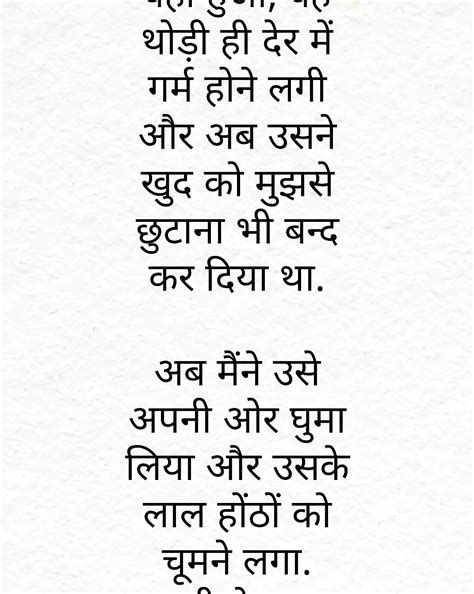 थोड़ी ही देर में
गर्म होने लगी
और अब उसने
खुद को मुझसे
छुटाना भी बन्द
कर दिया था.
अब मैंने उसे
अपनी ओर घुमा
लिया और उसके
लाल होंठों को
चूमने लगा.